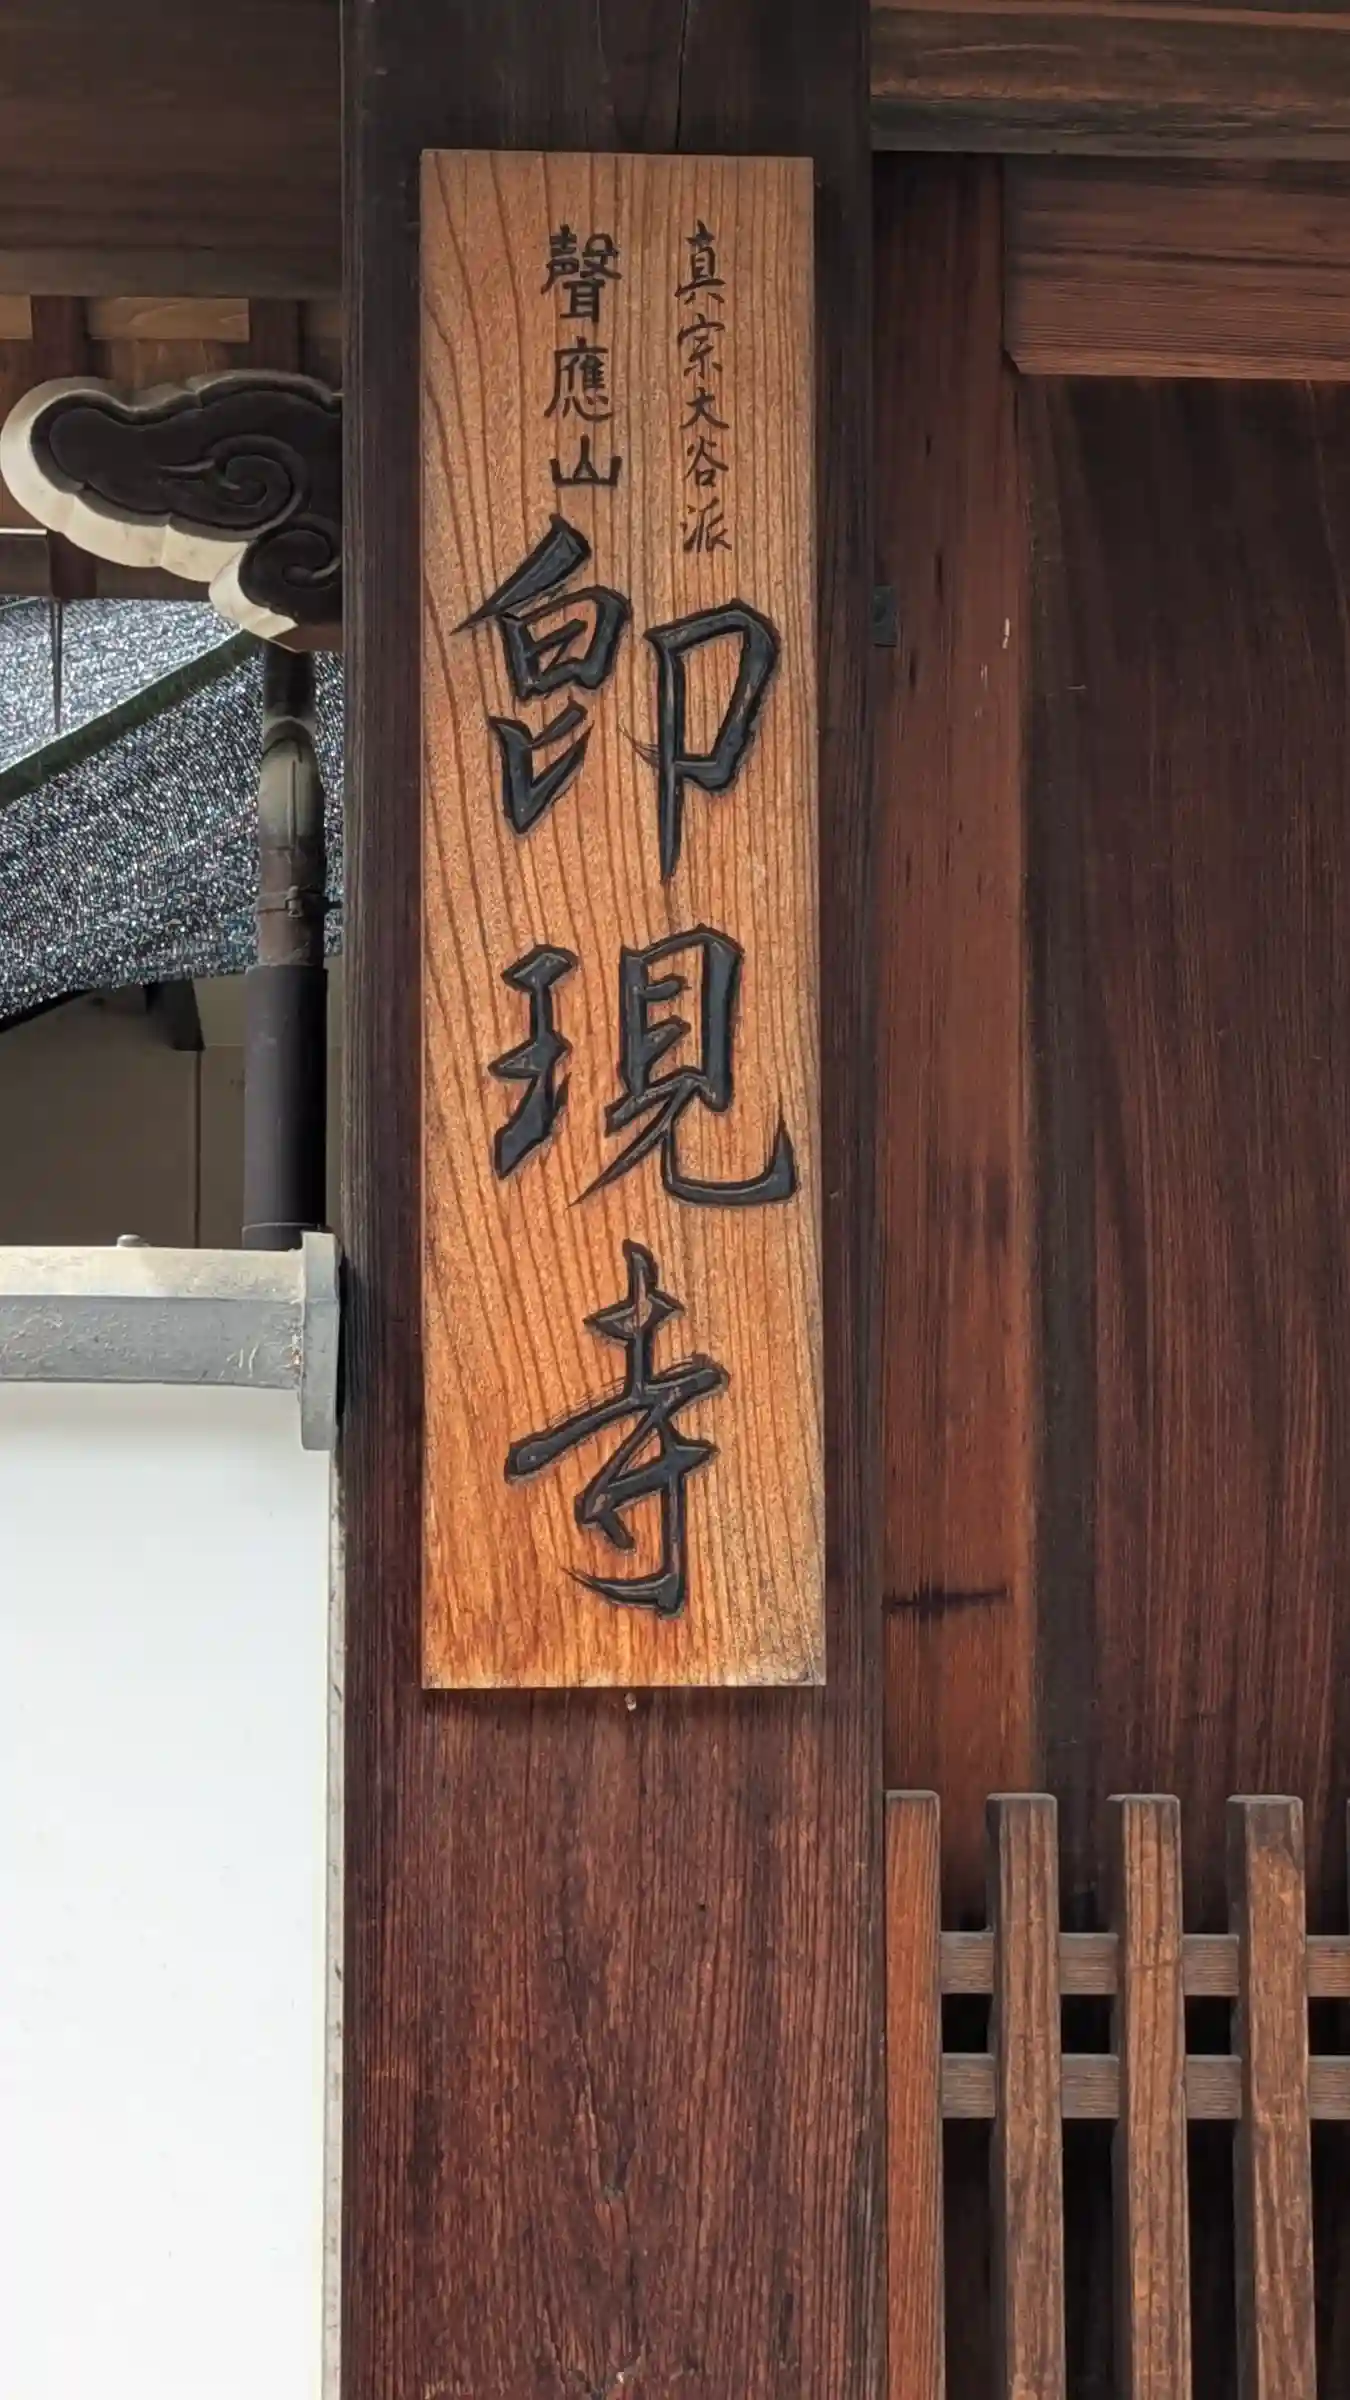 真宗大谷派
聲應山
卽現寺